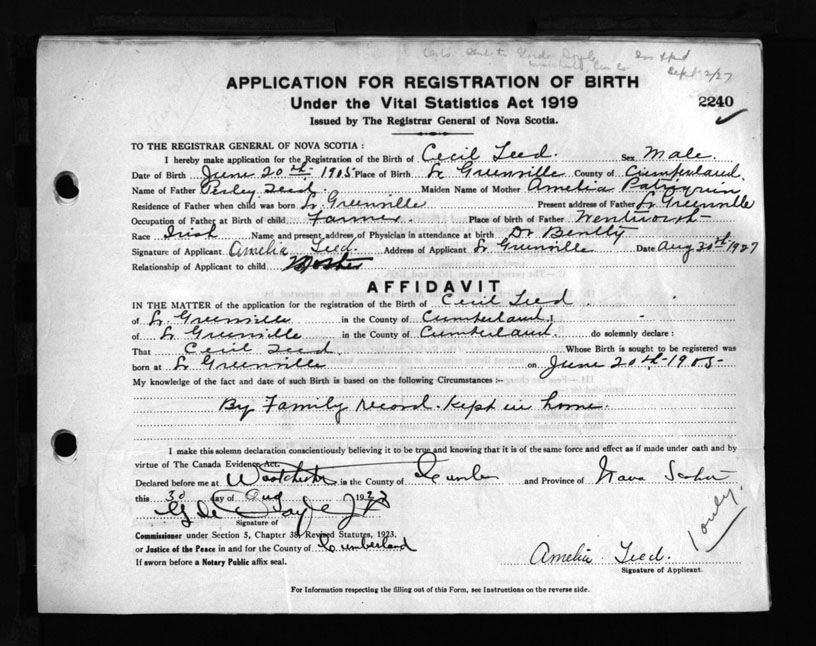 Sept 2/27
APPLICATION FOR REGISTRATION OF BIRTH
Under the Vital Statistics Act 1919
2240
Issued by The Registrar General of Nova Scotia.
TO THE REGISTRAR GENERAL OF NOVA SCOTIA :
I hereby make application for the Registration of the Birth of Cecil Teed. Sex Male.
Date of Birth June 20th 1905 Place of Birth Gr Greenville County of Cumberland.
Name of Father Teed. Maiden Name of Mother Amelia Patriquin
Residence of Father when child was born Greenville Present address of Father Greenville
Occupation of Father at Birth of child Farmer. Place of birth of Father Wentworth
Race Irish Name and present address of Physician in attendance at birth Dr Bently
Signature of Applicant Amelia Teed. Address of Applicant Greenville Date Aug 30th 1927
Relationship of Applicant to child Mother
AFFIDAVIT
IN THE MATTER of the application for the registration of the Birth of Cecil Teed.
of Greenville in the County of Cumberland.
of Greenville in the County of Cumberland. do solemnly declare :
That Cecil Teed. Whose Birth is sought to be registered was
born at Greenville on June 20th-1905-
My knowledge of the fact and date of such Birth is based on the following Circumstances :-
By Family record. kept in home.
I make this solemn declaration conscientiously believing it to be true and knowing that it is of the same force and effect as if made under oath and by
virtue of The Canada Evidence Act.
Declared before me at in the County of and Province of Nova Scotia
this 30 day of Aug 192
Signature of
Commissioner under Section 5, Chapter 38, Revised Statutes, 1923.
or Justice of the Peace in and for the County of Cumberland
1 only.
Amelia Teed.
If sworn before a Notary Public affix seal.
Signature of Applicant.
For Information respecting the filling out of this Form, see Instructions on the reverse side.